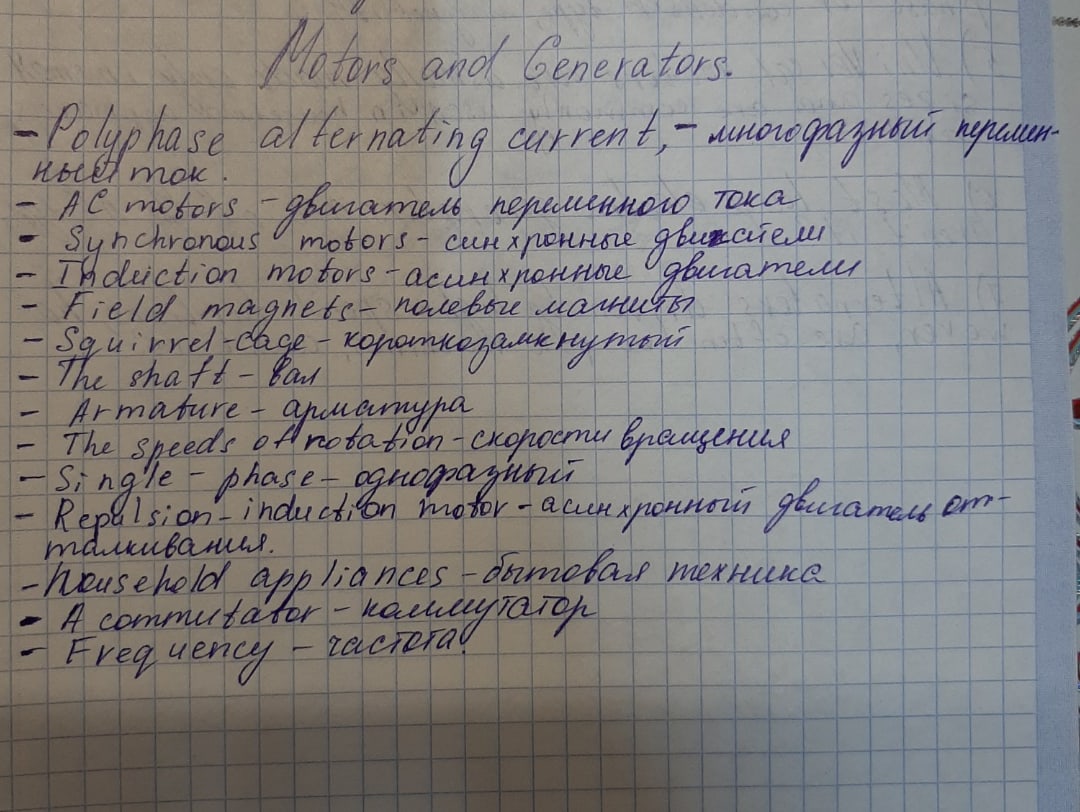 Motors and Generators.
- Polyphase alternating current, - многофазный перемен-
ный ток.
- AC motors - двигатель переменного тока
- Synchronous motors - синхронные двигатели
- Induction motors - асинхронные двигатели
- Field magnets - полевые магниты
- Squirrel-cage - короткозамкнутый
- The shaft - вал
- Armature - арматура
- The speeds of rotation - скорости вращения
- Single - phase - однофазный
- Repulsion - induction motor - асинхронный двигатель от-
талкивания.
- Household appliances - бытовая техника
- A commutator - коммутатор
- Frequency - частота.